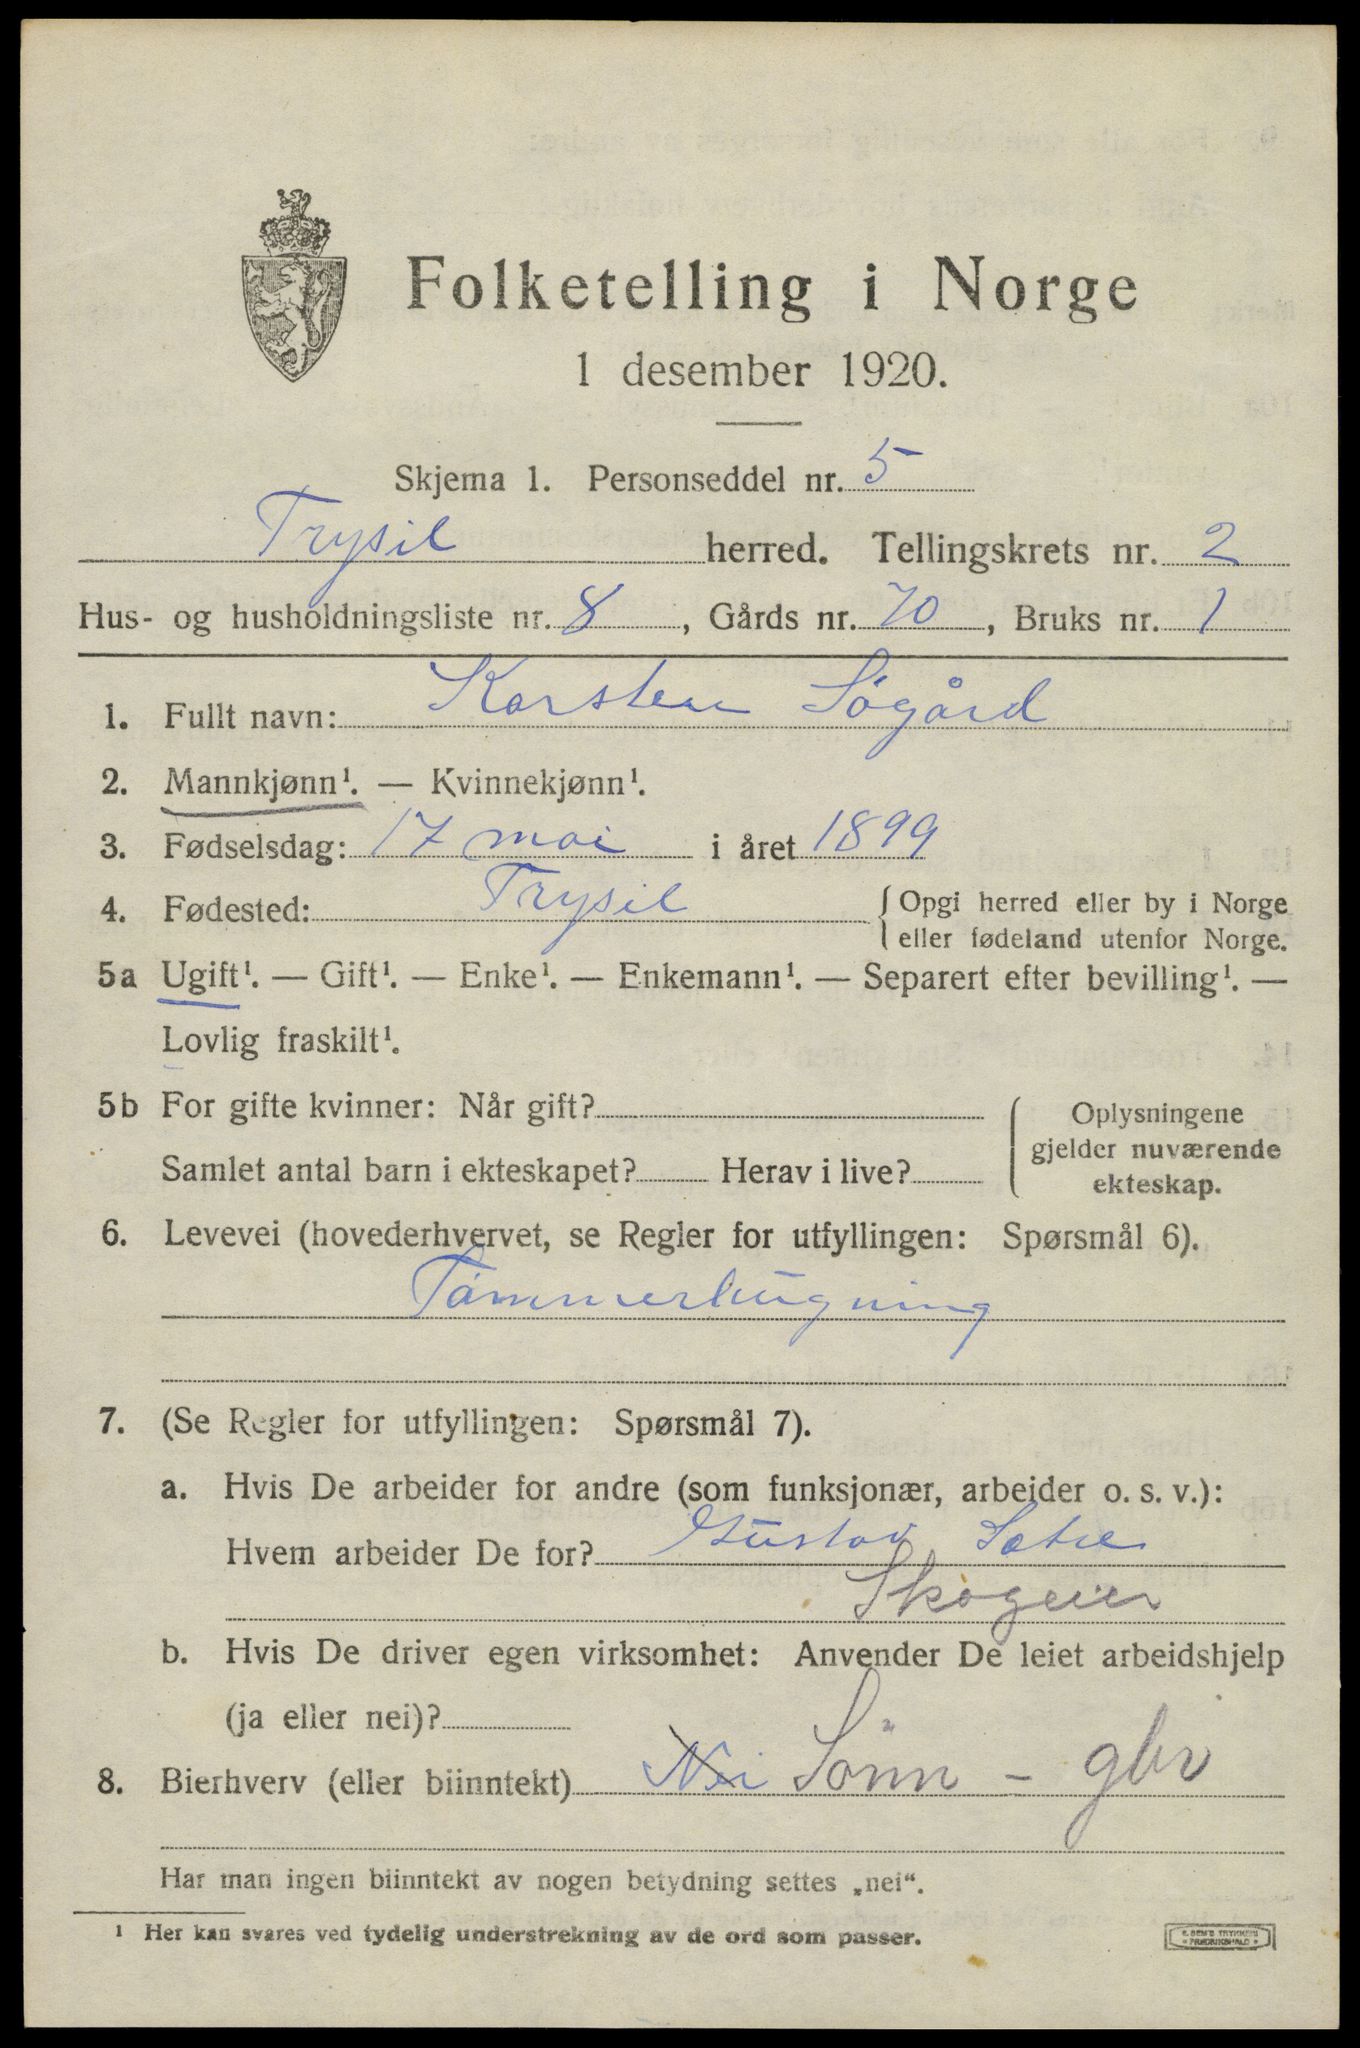 Folketelling i Norge
1 desember 1920.
Skjema 1. Personseddel nr. 5
Trysil herred. Tellingskrets nr. 2
Hus- og husholdningsliste nr. 8, Gårds nr. 70, Bruks nr. 1
1. Fullt navn: Karsten Søgård
2. Mannkjønn¹. — Kvinnekjønn¹.
3. Fødselsdag: 17 mai i året 1899
4. Fødested: Trysil { Opgi herred eller by i Norge
eller fødeland utenfor Norge.
5a Ugift¹. — Gift¹. — Enke¹. — Enkemann¹. — Separert efter bevilling¹. —
Lovlig fraskilt¹.
5b For gifte kvinner: Når gift? { Oplysningene
gjelder nuværende
Samlet antal barn i ekteskapet? Herav i live?
ekteskap.
6. Levevei (hovederhvervet, se Regler for utfyllingen: Spørsmål 6).
Tømmerhugning
7. (Se Regler for utfyllingen: Spørsmål 7).
a. Hvis De arbeider for andre (som funksjonær, arbeider o. s. v.):
Hvem arbeider De for? Gustav Sætre
Skogeier
b. Hvis De driver egen virksomhet: Anvender De leiet arbeidshjelp
(ja eller nei)?
8. Bierhverv (eller biinntekt) Nei Sönn - gbr
Har man ingen biinntekt av nogen betydning settes „nei“.
¹ Her kan svares ved tydelig understrekning av de ord som passer.